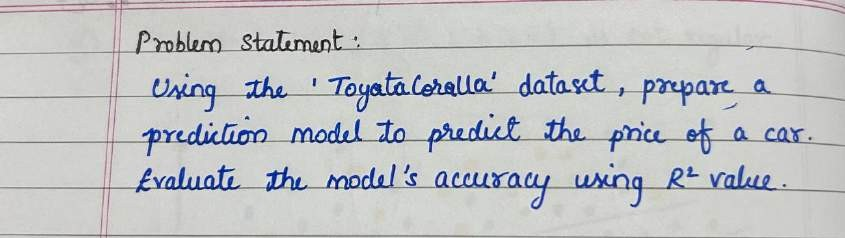 Problem Statement:
Using the 'ToyataCoralla' dataset, prepare a
prediction model to predict the price of a car.
Evaluate the model's accuracy using R² value.